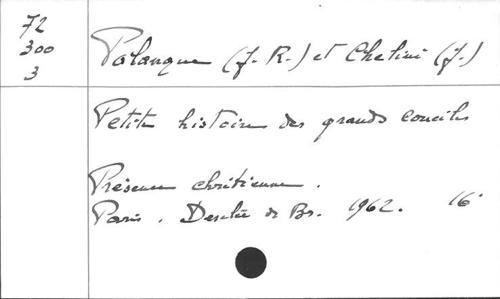 72
300
3
Palanque (J. R.) et Chelini (J.)
Petite histoire des grands conciles
Présence chrétienne.
Paris. Desclée de Br. 1962. 16°